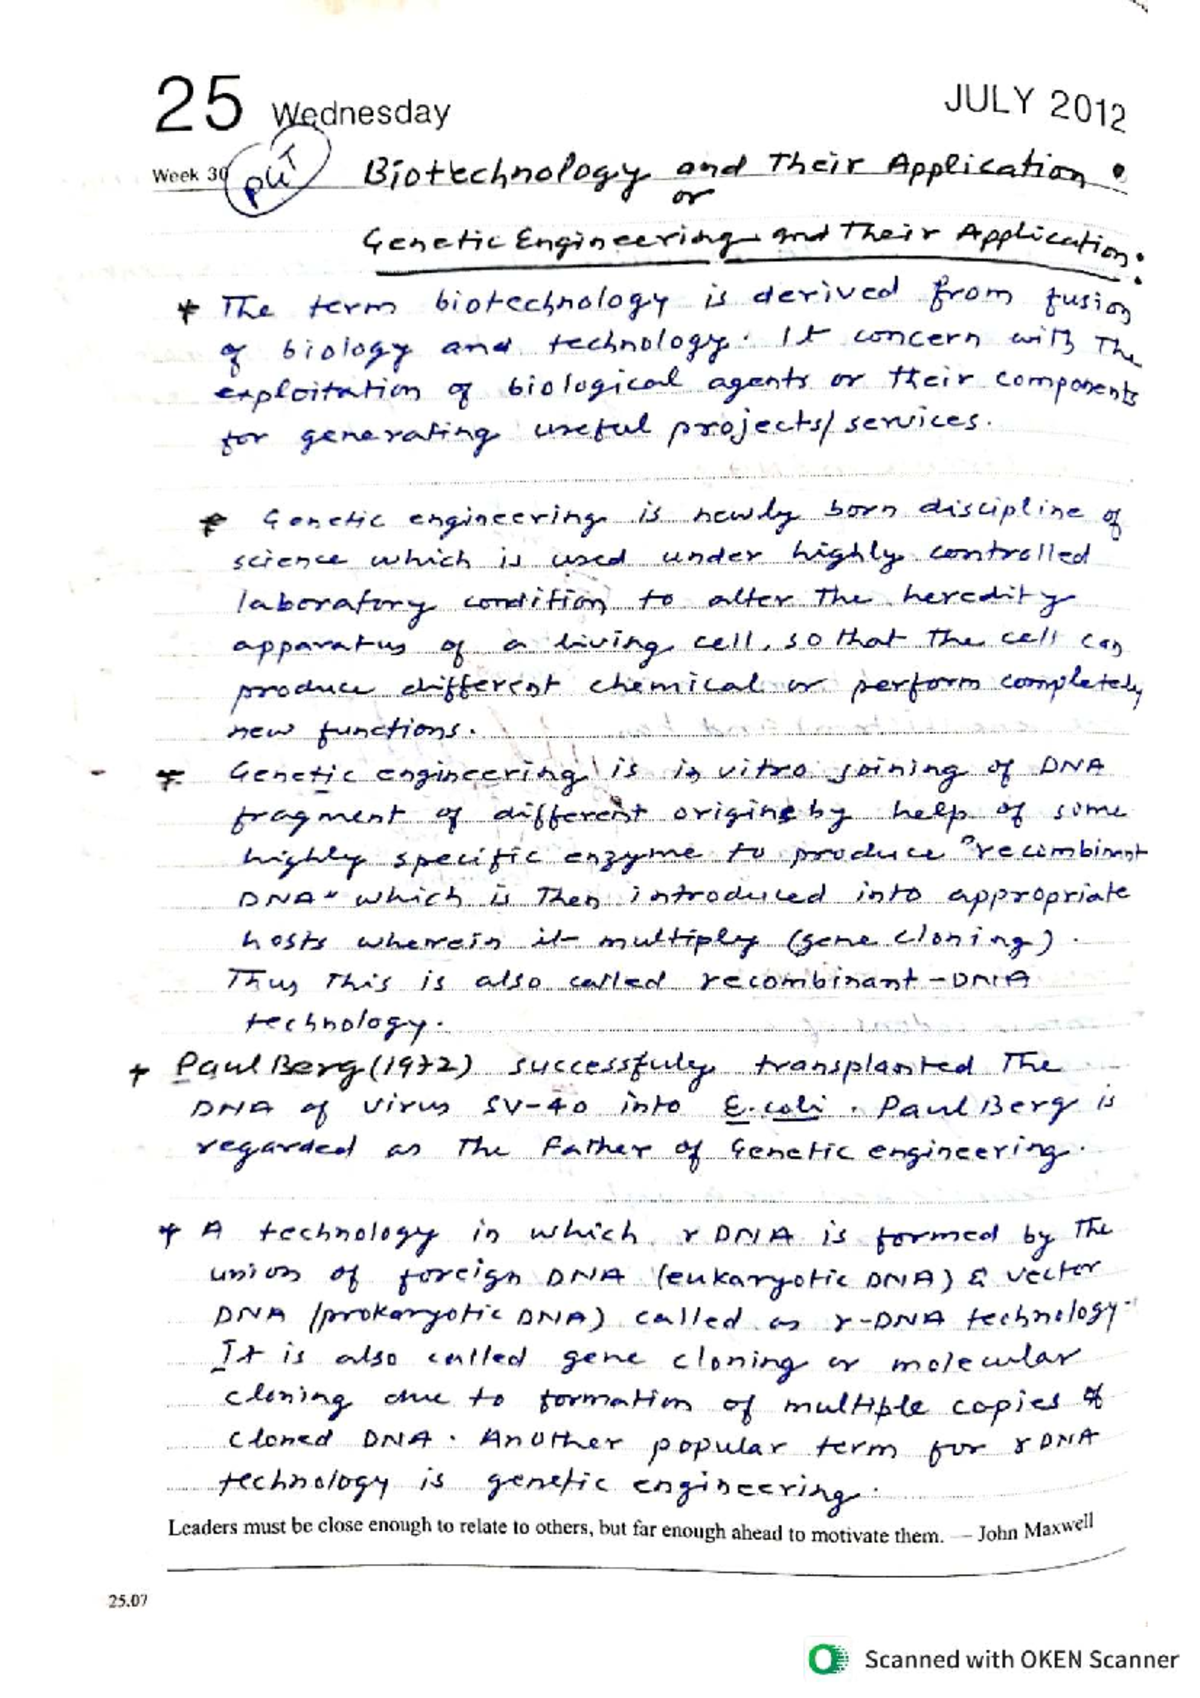 25 Wednesday
JULY 2012
Week 30
Biotechnology and Their Application :
or
Genetic Engineering and Their Application :
* The term biotechnology is derived from fusion
of biology and technology. It concern with The
exploitation of biological agents or their components
for generating useful projects/services.
* Genetic engineering is newly born discipline of
science which is used under highly controlled
laboratory condition to alter The heredity
apparatus of a living cell, so that the cell can
produce different chemical or perform completely
new functions.
* Genetic engineering is in vitro joining of DNA
fragment of different origins by help of some
highly specific enzyme to produce "recombinant
DNA" which is Then introduced into appropriate
hosts wherein it multiply (gene cloning).
Thus This is also called recombinant-DNA
technology.
* Paul Berg (1972) successfuly transplanted The
DNA of virus SV-40 into E.coli. Paul Berg is
regarded as The Father of Genetic engineering.
* A technology in which r DNA is formed by The
union of foreign DNA (eukaryotic DNA) & vector
DNA (prokaryotic DNA) called as r-DNA technology.
It is also called gene cloning or molecular
cloning due to formation of multiple copies of
cloned DNA. Another popular term for rDNA
technology is genetic engineering.
Leaders must be close enough to relate to others, but far enough ahead to motivate them. — John Maxwell
25.07
Scanned with OKEN Scanner